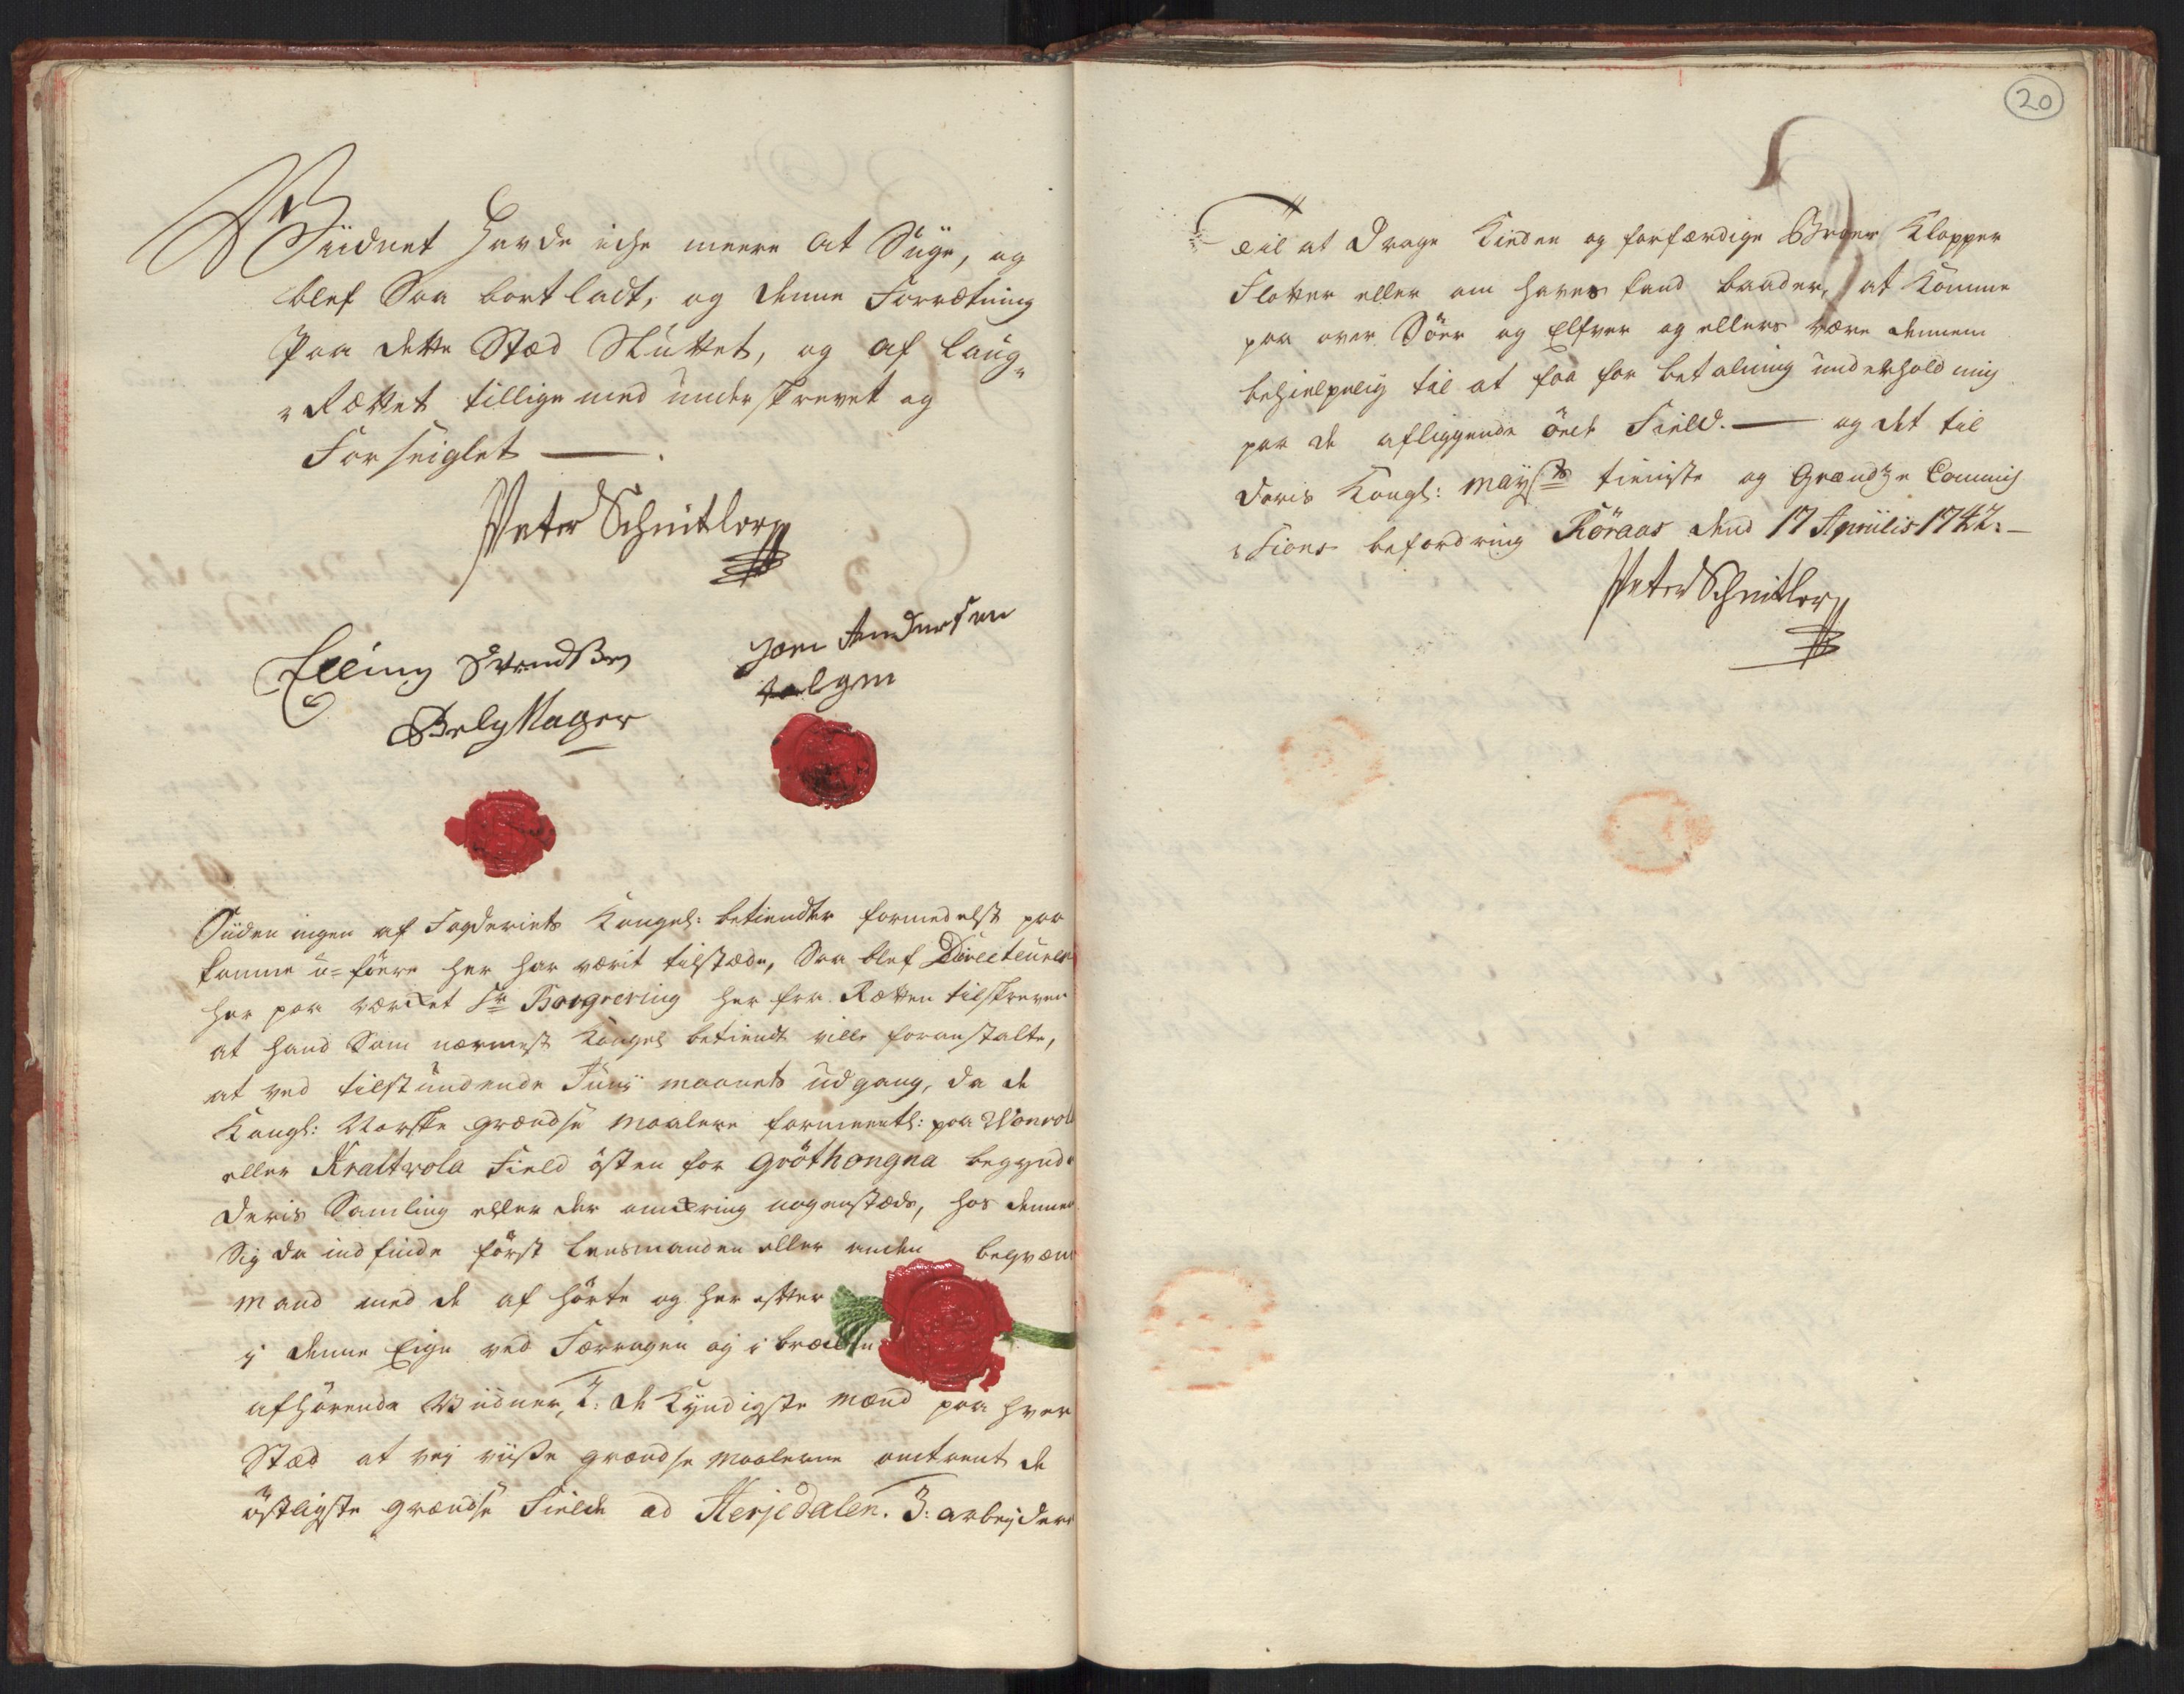 Viidnet havde iche meere at Siige, og
blef Saa bortladt, og denne Forrætning
Paa dette Stæd Sluttet, og af Laug„
„Rættet tillige med underskrevet og
Forseiglet —.
Peter Schnitler
Elling Svendsen
Jon Andersen
Siiden ingen af Fogderiets Kongel: betiendter formedelst paa
komne u=føere her har værit tilstæde, Saa blef Directeuren
her paa værcket Sr Borgresing her fra Rætten tilskreven
at hand Som nærmest Kongel betiendt ville foranstalte,
at ved tilstundende Junij maanets udgang, da de
Kongl: Norske grændse maalere formeentl: paa
eller Kraltvola Field østen for Grøthongna begynde
deris Samling eller der omkring nogenstæds, hos dennem
Sig da indfinde først Lensmanden eller anden beqvæm
mand med de af hørte og her efter
i denne Eign ved Færragen og i
afhørende Viidner, 2: de Kyndigste mænd paa hver
Stæd at vej viise grændse maalerne omtrent de
østligste grændse Fielde ad Herjedalen. 3: arbejdere
20
til at Drage Kieden og forfærdige Broer Klopper
Flotter eller om haves kand baader, at komme
paa over Søer og Elfver og ellers være dennem
behielpelig til at faa for betalning underholdning
paa de afliggende øede Field. — og det til
Deris Kongl: Mayts tieniste og Grændze Commis
„sions befordring Röraas dend 17 Aprilis 1742. —
Peter Schnitler